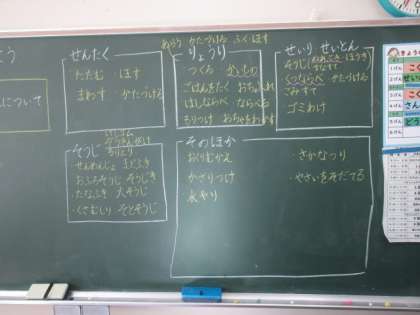 こう
について
せんたく
・たたむ ・ほす
・まわす ・かたづける
あらう かたづける ふく ほす
りょうり
・つくる ・かいもの
・ごはんをたく
・はしならべ ・ならべる
・もりつけ ・おちゃをわかす
せいり せいとん
そうじ
ほうき
くつならべ ・かたづける
・ごみすて
・ゴミわけ
そうじ
・せんめんじょ
・おふろそうじ
・たなふき ・大そうじ
・くさむしり ・そとそうじ
そのほか
・おくりむかえ
・かざりつけ
・水やり
・さかなつり
・やさいをそだてる